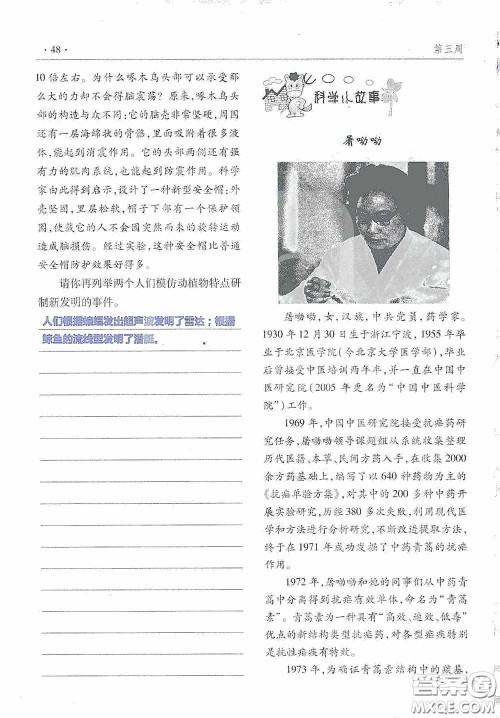 · 48 ·
第三周
10 倍左右。为什么啄木鸟头部可以承受那
么大的力却不会得脑震荡？原来，啄木鸟头
部的构造与众不同：它的脑壳非常坚硬，周围
还有一层海绵状的骨骼，里面吸附着很多液
体，能起到消震作用。它的头部两侧还有强
有力的肌肉系统，也能起到防震作用。科学
家由此得到启示，设计了一种新型安全帽：外
壳坚固，里层松软，帽子下部有一个保护领
圈，使戴它的人不会因突然而来的旋转运动
造成脑损伤。经过实验，这种安全帽比普通
安全帽防护效果好得多。
请你再列举两个人们模仿动植物特点研
制新发明的事件。
人们根据蝙蝠发出超声波发明了雷达；根据
鲸鱼的流线型发明了潜艇。
科学小故事
屠呦呦
屠呦呦，女，汉族，中共党员，药学家。
1930 年 12 月 30 日生于浙江宁波，1955 年毕
业于北京医学院（今北京大学医学部），毕业
后曾接受中医培训两年半，并一直在中国中
医研究院（2005 年更名为“中国中医科学
院”）工作。
1969 年，中国中医研究院接受抗疟药研
究任务，屠呦呦领导课题组从系统收集整理
历代医籍、本草、民间方药入手，在收集 2000
余方药基础上，编写了以 640 种药物为主的
《抗疟单验方集》，对其中的 200 多种中药开
展实验研究，历经 380 多次失败，利用现代医
学和方法进行分析研究，不断改进提取方法，
终于在 1971 年成功发掘了中药青蒿的抗疟
作用。
1972 年，屠呦呦和她的同事们从中药青
蒿中分离得到抗疟有效单体，命名为“青蒿
素”。青蒿素为一种具有“高效、速效、低毒”
优点的新结构类型抗疟药，对各型疟疾特别
是抗性疟疾有特效。
1973 年，为确证青蒿素结构中的羰基，
答案圈
MXQE.COM